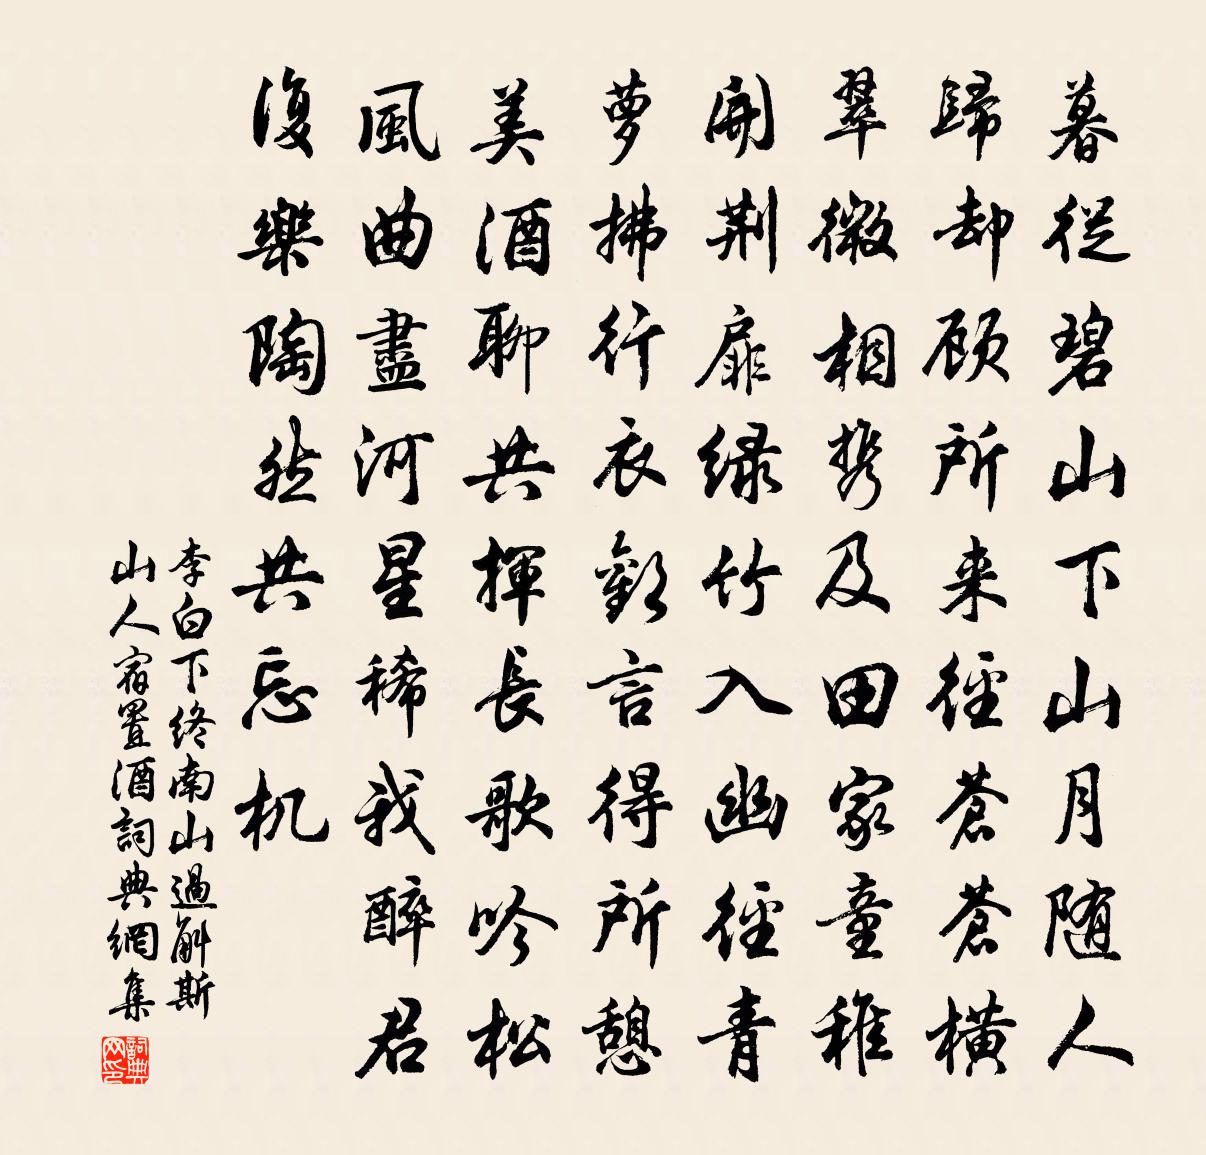 暮從碧山下山月随人
歸却顾所来徑蒼蒼橫
翠微相携及田家童稚
開荆扉绿竹入幽徑青
萝拂行衣歡言得所憩
美酒聊共揮長歌吟松
風曲盡河星稀我醉君
復樂陶然共忘机
李白下终南山過斛斯
山人宿置酒詞典網集
詞典网印